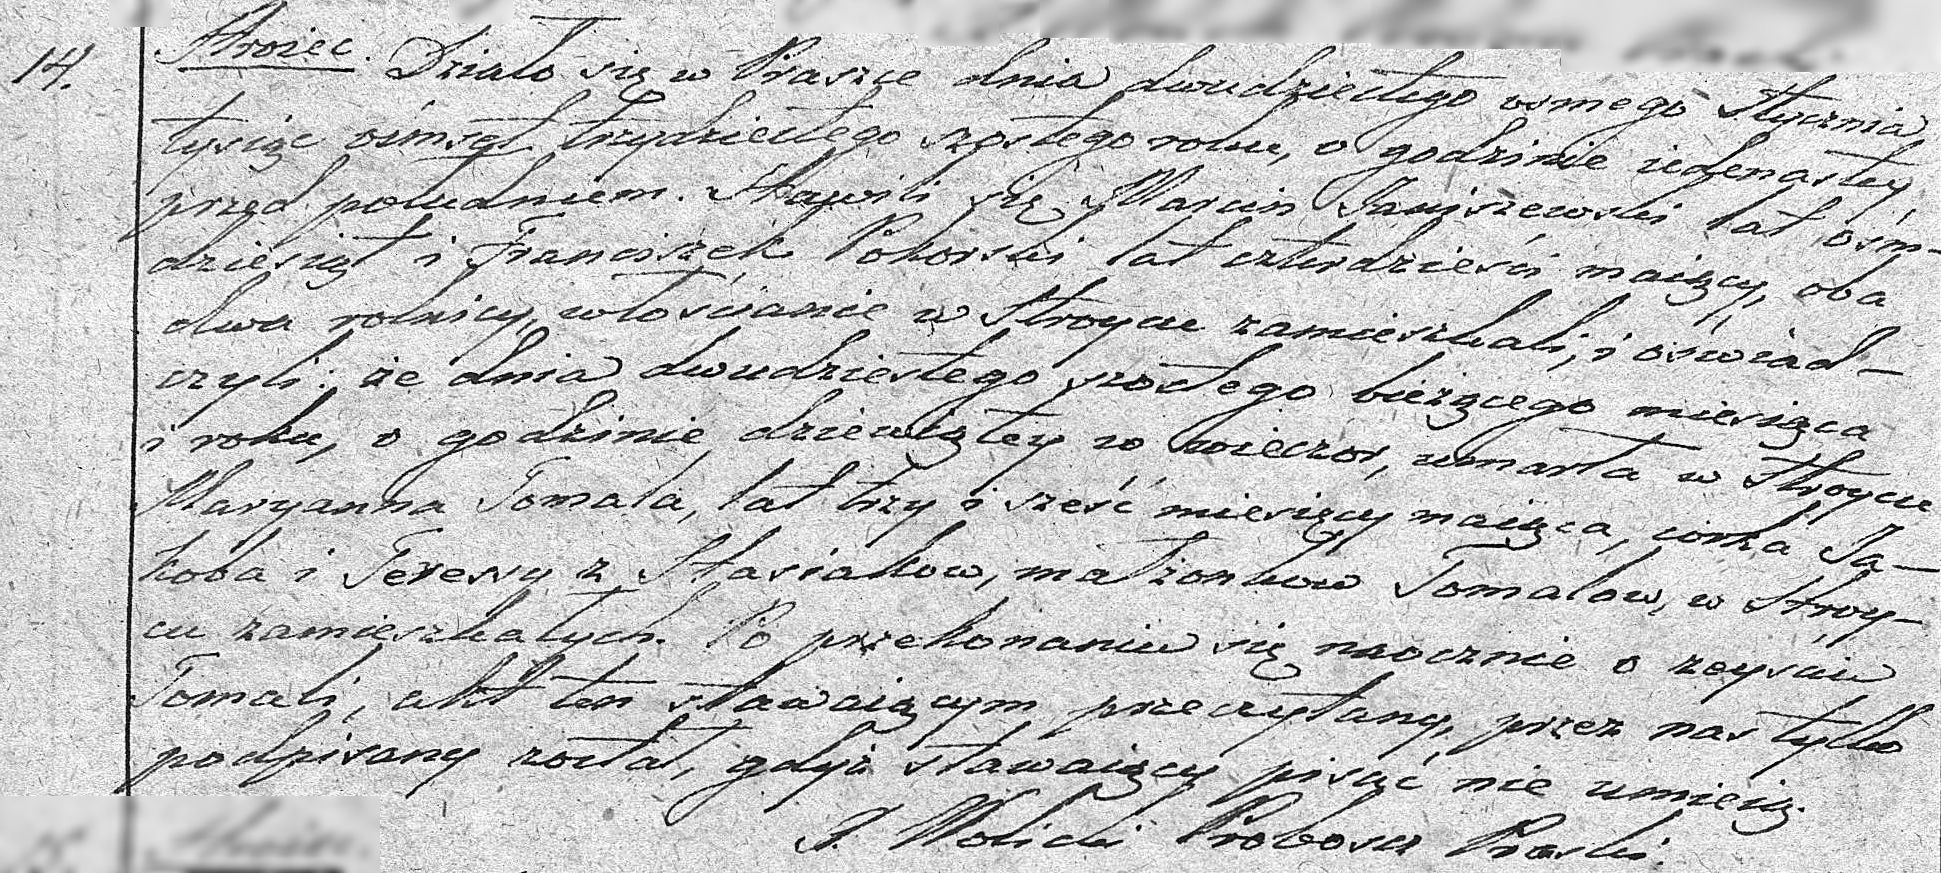 14. Stroiec. Działo się w Praszce dnia dwudziestego osmego Stycznia
tysiąc ośmset trzydziestego szostego roku, o godzinie iedenastey
przed południem. Stawili się Marcin Janiszewski lat ośm-
dziesiąt i Franciszek Pokorski lat czterdzieści maiący, oba
dwa rolnicy, włościanie w Stroycu zamieszkali, i oświad-
czyli; że dnia dwudziestego szostego bieżącego miesiąca
i roku, o godzinie dziewiątey w wieczor, umarła w Stroycu
Maryanna Tomala, lat trzy i sześć miesięcy maiąca, corka Ja-
koba i Teressy z Stasiakow, małżonkow Tomalow, w Stroy-
cu zamieszkałych. Po przekonaniu się naocznie o zeyściu
Tomali, akt ten stawaiącym przeczytany, przez nas tylko
podpisany został, gdyż stawaiący pisać nie umieią.
Proboszcz Praski.